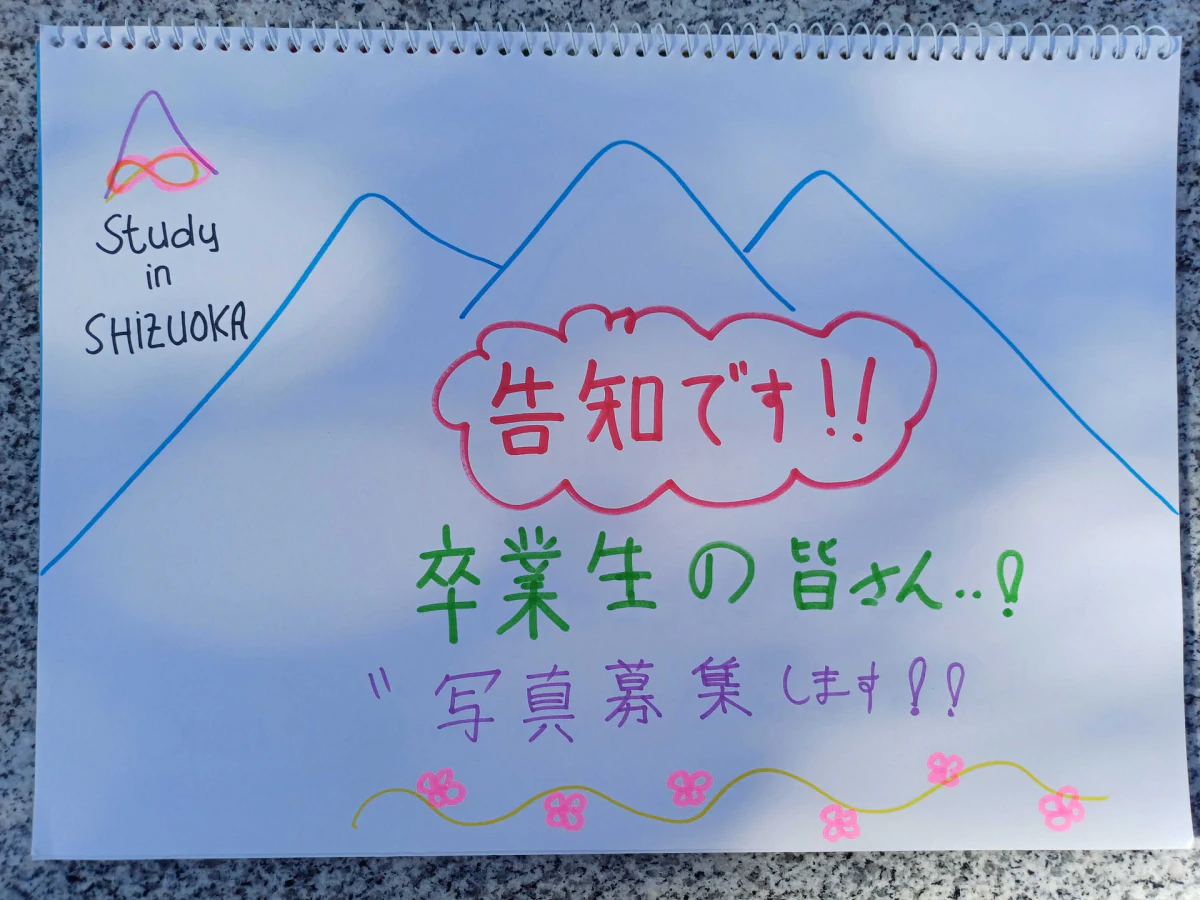 Study
in
SHiZUOKA
告知です!!
卒業生の皆さん..!
"写真募集します!!